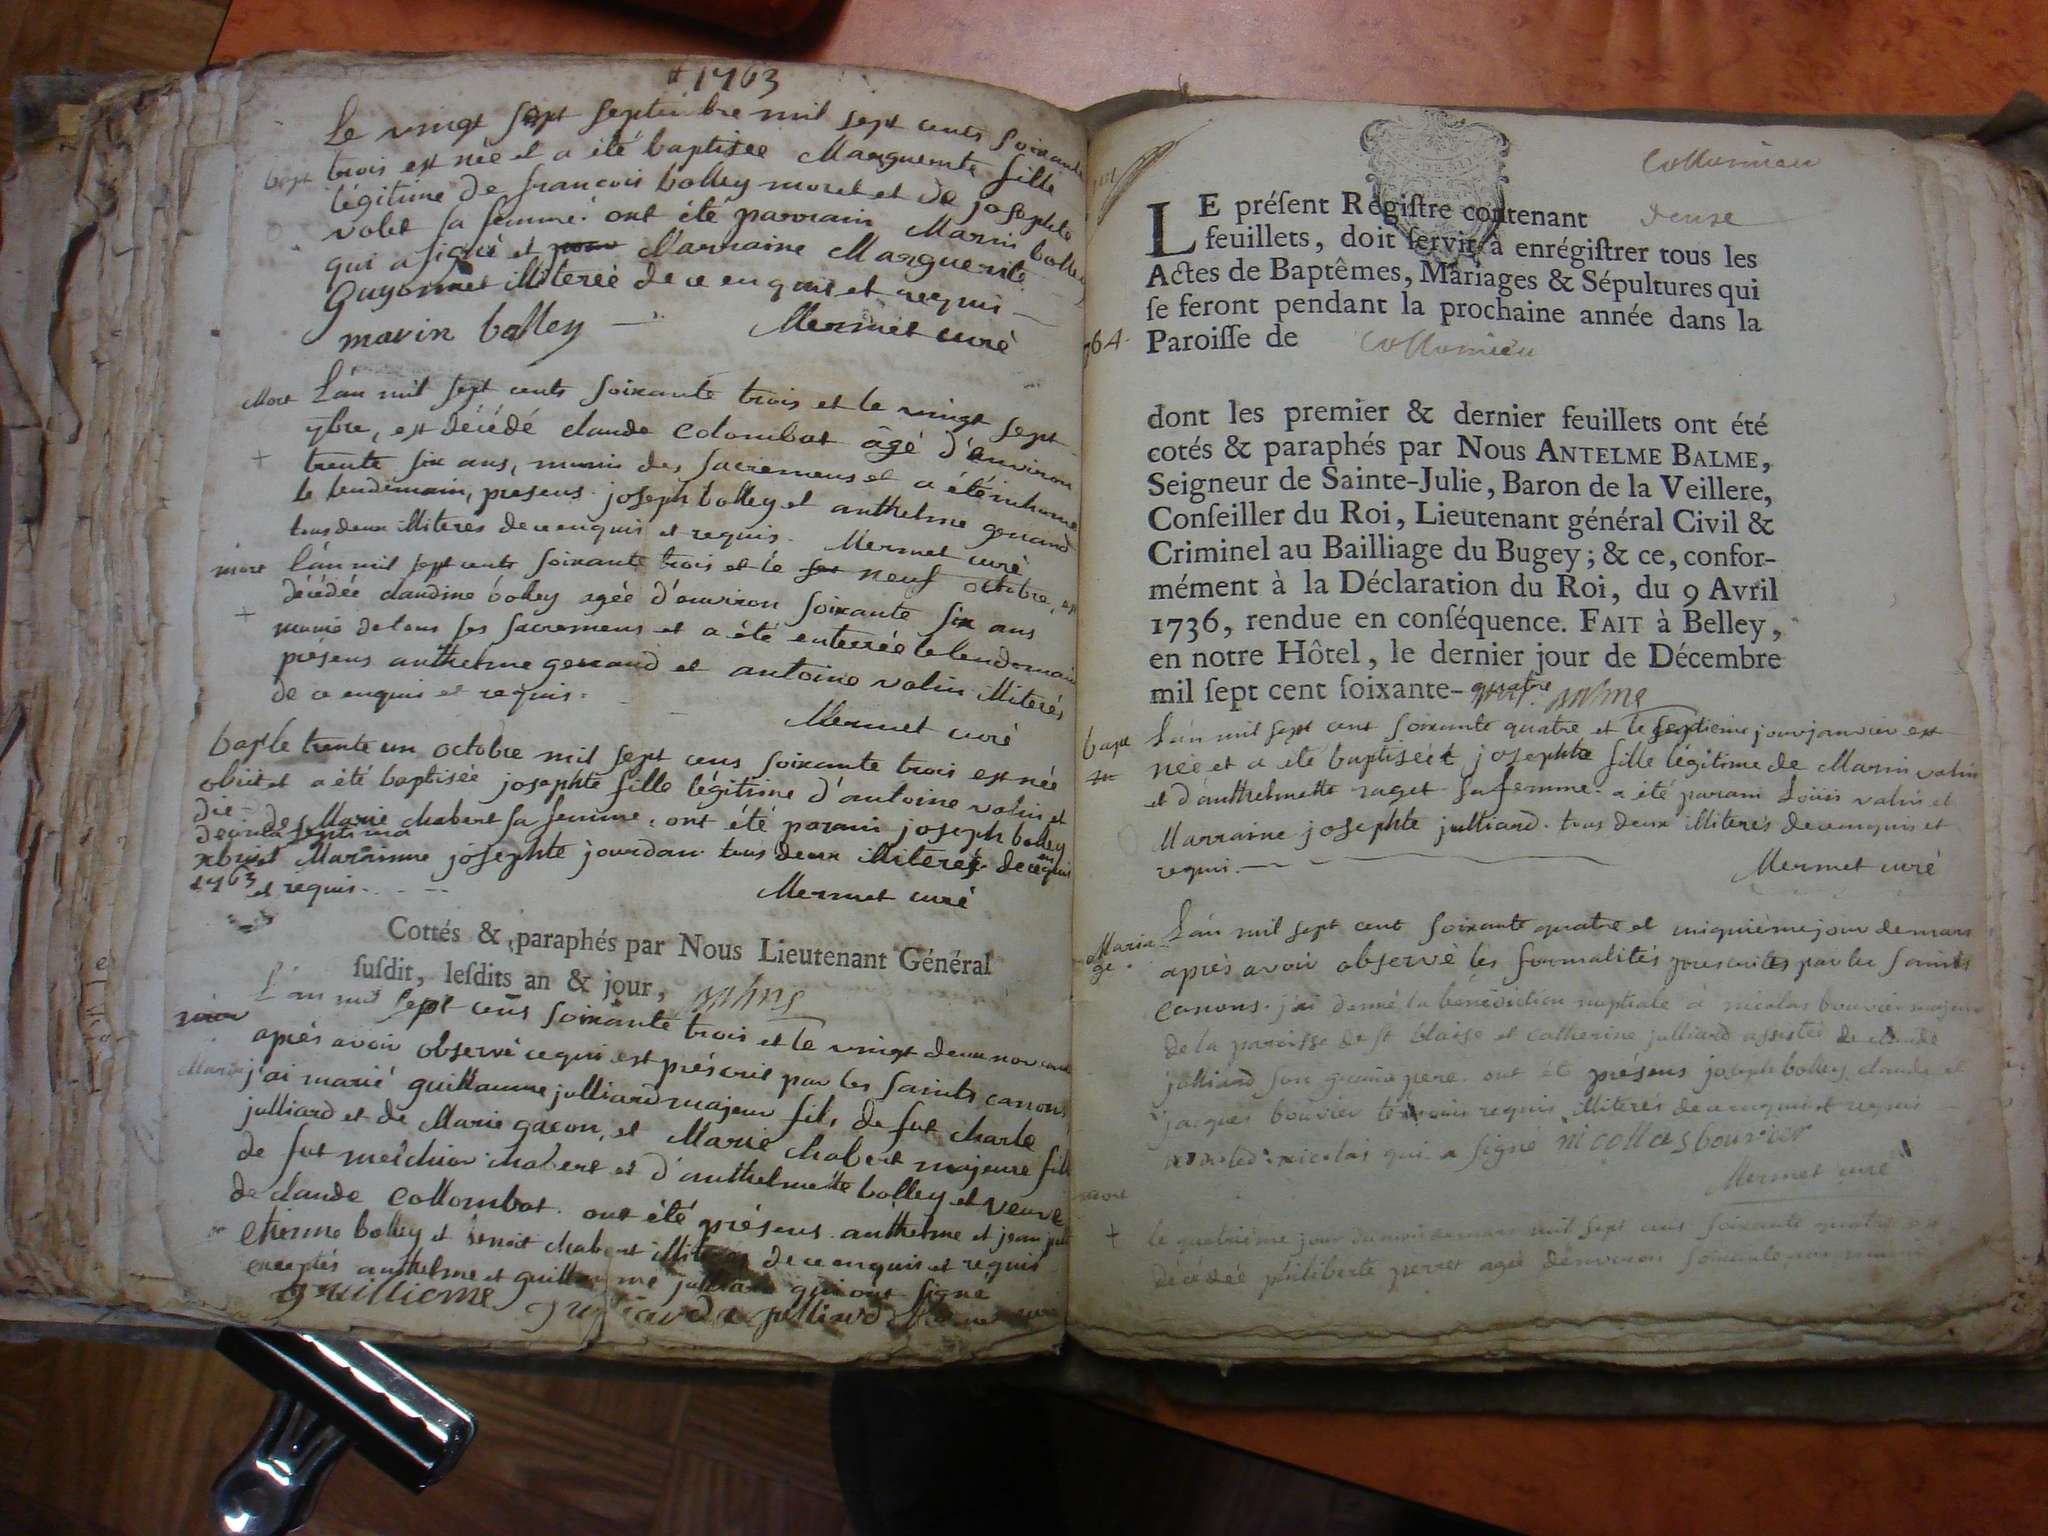 1763
Le vingt sept septembre mil sept cents soixante
bapt trois est née et a été baptisée Marguerite fille
légitime de francois bolley moret et de josephte
volet sa femme. ont été parrain Marin bolley
qui a signé et pour Marraine Marguerite
Guyonnet illiterée de ce enquis et requis
marin bolley Mermet curé
Mort L'an mil sept cents soixante trois et le vingt sept
7bre, est décédé claude Colombat âgé d'environ
+ trente six ans, munis des sacremens et a été inhumé
le lendemain, presens joseph bolley et anthelme genand
tous deux illiteres de ce enquis et requis. Mermet curé
mort L'an mil sept cents soixante trois et le neuf octobre, est
décédée claudine bolley agée d'environ soixante six ans
+ munie de tous ses sacremens et a été enterrée le lendemain
presens anthelme genand et antoine valin illiterés
de ce enquis et requis.
Mermet curé
bap le trente un octobre mil sept cens soixante trois est née
obiit et a été baptisée josephte fille légitime d'antoine valin et
die de Marie chabert sa femme, ont été parain joseph bolley
decima septima
xbris Marainne josephte jourdan tous deux illiterés de ce enquis
1763 et requis.
Mermet curé
Cottés & paraphés par Nous Lieutenant Général
suſdit, leſdits an & jour, Balme
L'an mil sept cens soixante trois et le vingt deux novembre
après avoir observé ce qui est préscrit par les saints canons
Maria j'ai marié guillaume julliard majeur fils de fut charle
julliard et de Marie gacon, et Marie chabert majeure fille
de fut melchior chabert et d'anthelmette bolley et veuve
de claude Collombat. ont été présens anthelme et jean
etienne bolley et benoit chabert illiteres de ce enquis et requis
exceptés anthelme et guillaume julliard qui ont signé
guilliome julliard a julliard Mermet curé
Collomieu
LE préſent Regiſtre contenant douze
feuillets, doit ſervir à enrégiſtrer tous les
Actes de Baptêmes, Mariages & Sépultures qui
ſe feront pendant la prochaine année dans la
764 Paroiſſe de Collomieu
dont les premier & dernier feuillets ont été
cotés & paraphés par Nous ANTELME BALME,
Seigneur de Sainte-Julie, Baron de la Veillere,
Conſeiller du Roi, Lieutenant général Civil &
Criminel au Bailliage du Bugey; & ce, confor-
mément à la Déclaration du Roi, du 9 Avril
1736, rendue en conſéquence. FAIT à Belley,
en notre Hôtel, le dernier jour de Décembre
mil ſept cent ſoixante-quatre Balme
bapt L'an mil sept cent soixante quatre et le septieme jour janvier est
née et a été baptisée josephte fille légitime de Marin valin
et d'anthelmette raget sa femme. a été parain Loüis valin et
Marraine josephte julliard. tous deux illiterés de ce enquis et
requis. Mermet curé
Maria L'an mil sept cent soixante quatre et cinquième jour de mars
ge après avoir observé les formalités prescrites par les saints
canons. j'ai donné la bénédiction nuptiale à nicolas bouvier majeur
de la paroisse de st blaise et catherine julliard assistée de claude
julliard son grand pere. ont été présens joseph bolley claude et
jacques bouvier témoins requis illiterés de ce enquis et requis
nicolas qui a signé nicollas bouvier
Mermet curé
mort
+ le quatrième jour du mois de mars mil sept cens soixante quatre est
décédée philiberte perret agée d'environ soixante ans munie